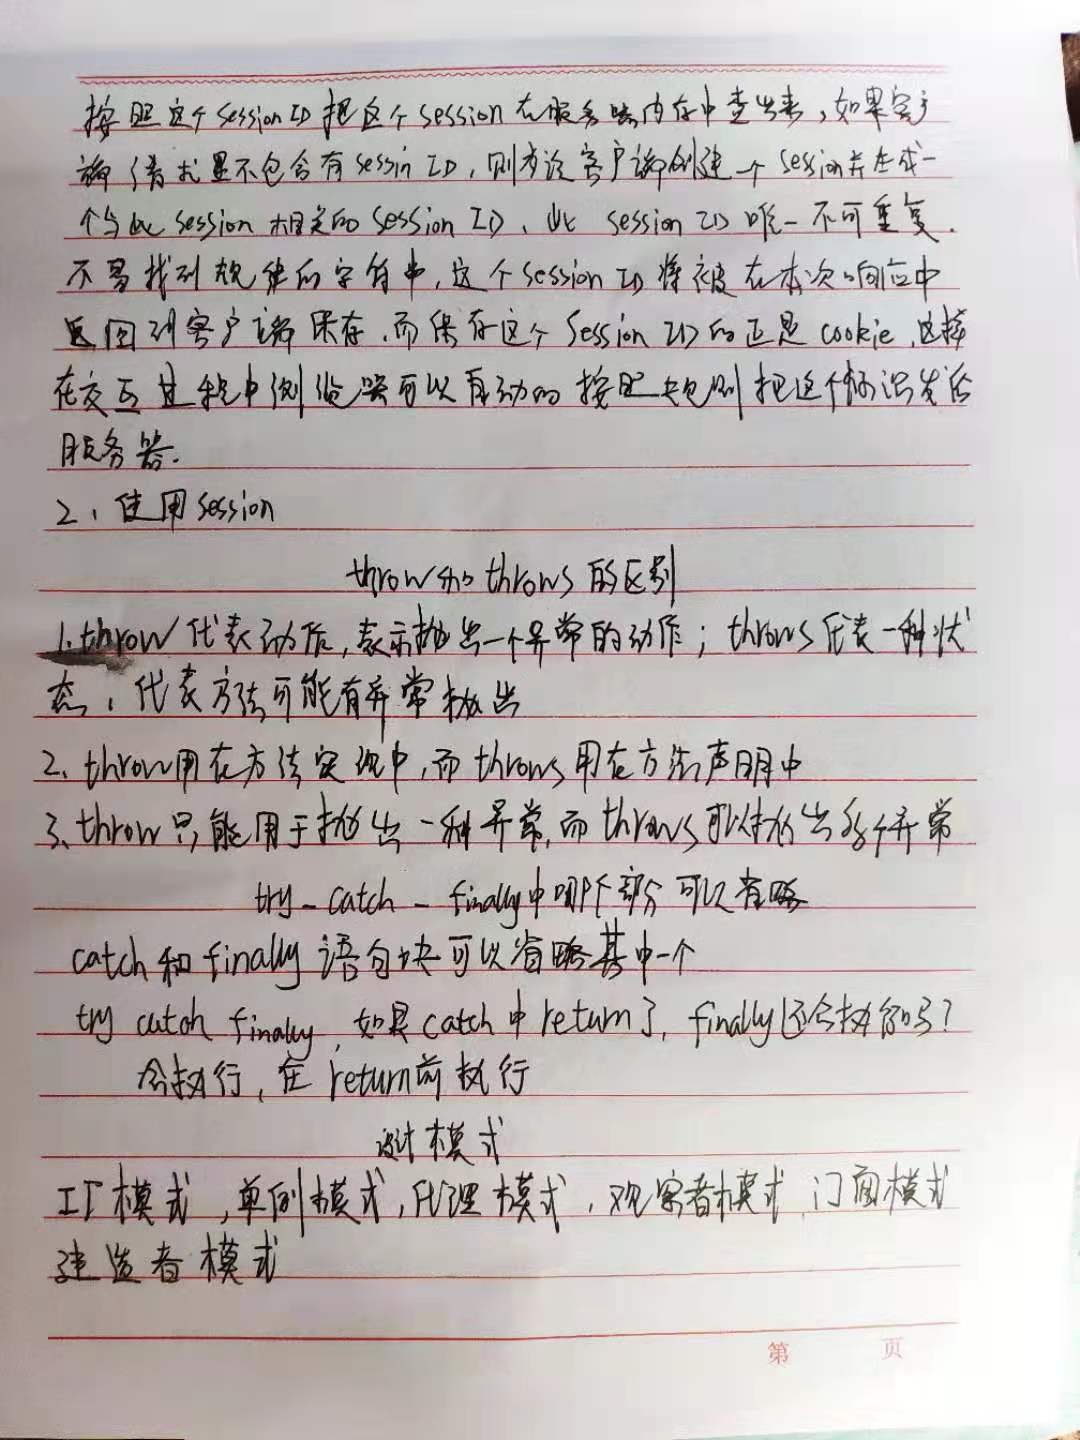 按照这个session ID把这个session在服务器内存中查出来，如果客户
端请求里不包含有sessin ID，则为该客户端创建一个session并生成一
个与此session相关的session ID、此 session ID唯一不可重复.
不易找到规律的字符串，这个session ID将被在本次响应中
返回到客户端保存.而保存这个Session ID的正是cookie，这样
在交互过程中浏览器可以自动的按照规则把这个标识发给
服务器.
2、使用session
throw和throws的区别
1.throw代表动作，表示抛出一个异常的动作；throws代表一种状
态，代表方法可能有异常抛出
2、throw用在方法实现中，而throws用在方法声明中
3、throw只能用于抛出一种异常，而throws可以抛出多个异常
try-catch-finally中哪个部分可以省略
catch和finally语句块可以省略其中一个
try catch finally，如果catch中return了，finally还会执行吗？
会执行，在return前执行
设计模式
工厂模式，单例模式，代理模式，观察者模式，门面模式
建造者模式
第 页